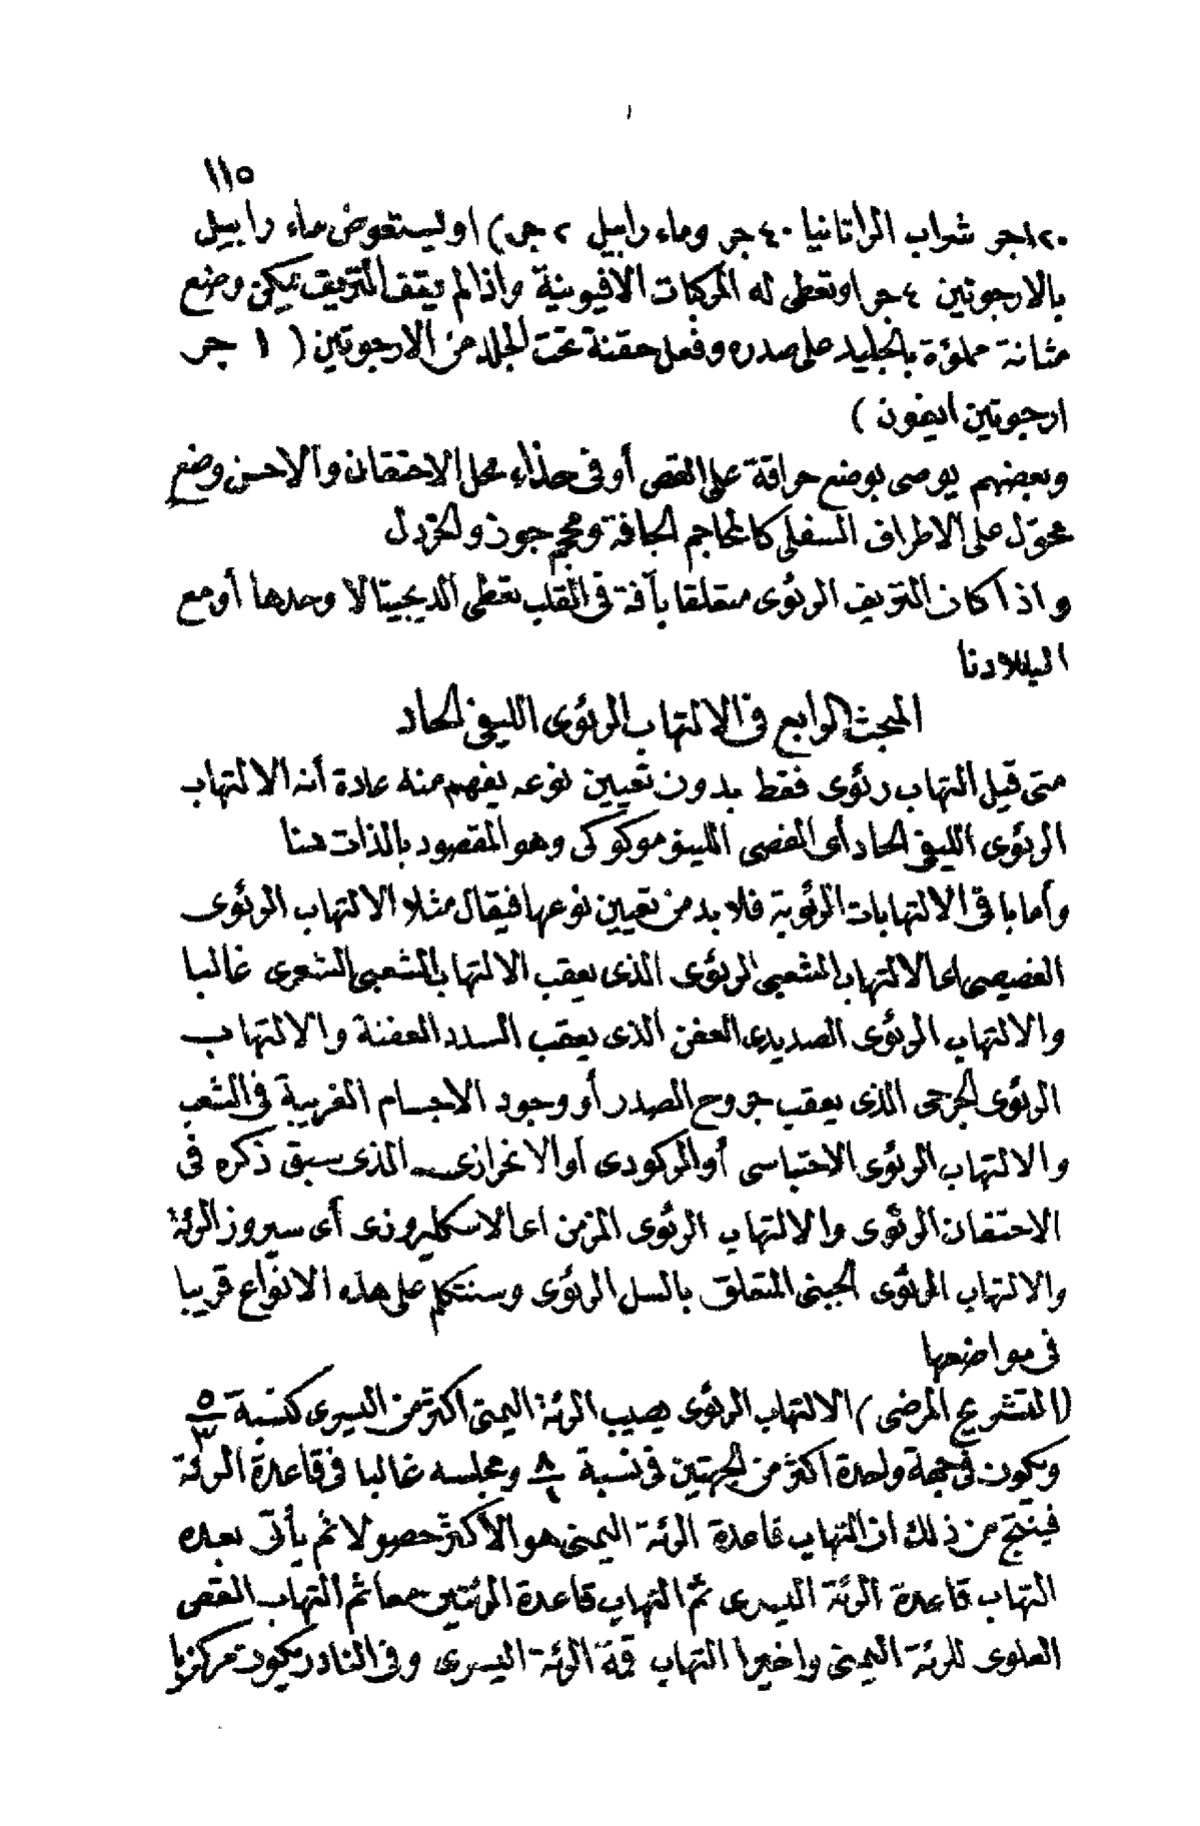 ١١٥
١٢٠جر شراب الراتانيا ٤٠جر وماء رابيل ٢ جر) او ليستعوض ماء رابيل
بالارجوتين ٤جر او تعطى له المركبات الافيونية واذا لم يقف النزيف يمكن وضع
مثانة مملؤة بالجليد على صدره وفعل حقنة تحت الجلد من الارجوتين (١ جر
ارجوتين ايفون)
وبعضهم يوصى بوضع حراقة على القص أو فى حذاء محل الاحتقان والاحسن وضع
محوّل على الاطراف السفلى كالمحاجم الجافة ومحجم جونود والخردل
واذا كان النزيف الرئوى متعلقا بآفة فى القلب تعطى الديجيتالا وحدها أو مع
البللادنا
المبحث الرابع فى الالتهاب الرئوى الليفى الحاد
متى قيل التهاب رئوى فقط بدون تعيين نوعه يفهم منه عادة أنه الالتهاب
الرئوى الليفى الحاد أى الفصى اللينوموكوكى وهو المقصود بالذات هنا
وأما باقى الالتهابات الرئوية فلا بد من تعيين نوعها فيقال مثلا الالتهاب الرئوى
الفصيصى اى الالتهاب الشعبى الرئوى الذى يعقب الالتهاب الشعبى الشعرى غالبا
والالتهاب الرئوى الصديدى العفن الذى يعقب السدد العفنة والالتهاب
الرئوى الجرحى الذى يعقب جروح الصدر أو وجود الاجسام الغريبة فى الشعب
والالتهاب الرئوى الاحتباسى أو الركودى او الانخرازى الذى سبق ذكره فى
الاحتقان الرئوى والالتهاب الرئوى المزمن اى الاسكليروزى أى سيروز الرئة
والالتهاب الرئوى الجبنى المتعلق بالسل الرئوى وسنتكلم على هذه الانواع قريبا
فى مواضعها
(التشريح المرضى) الالتهاب الرئوى يصيب الرئة اليمنى اكثر من اليسرى كنسبة ٥/٣
ويكون فى جهة واحدة اكثر من الجهتين فى نسبة ٨/١ ومجلسه غالبا فى قاعدة الرئة
فينتج من ذلك ان التهاب قاعدة الرئة اليمنى هو الأكثر حصولا ثم يأتى بعده
التهاب قاعدة الرئة اليسرى ثم التهاب قاعدة الرئتين معا ثم التهاب الفص
العلوى للرئة اليمنى واخيرا التهاب قمة الرئة اليسرى وفى النادر يكون مركزيا